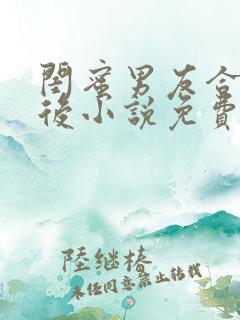 闺蜜男友合
後小说免費
陸继椿
未经同意禁止转载